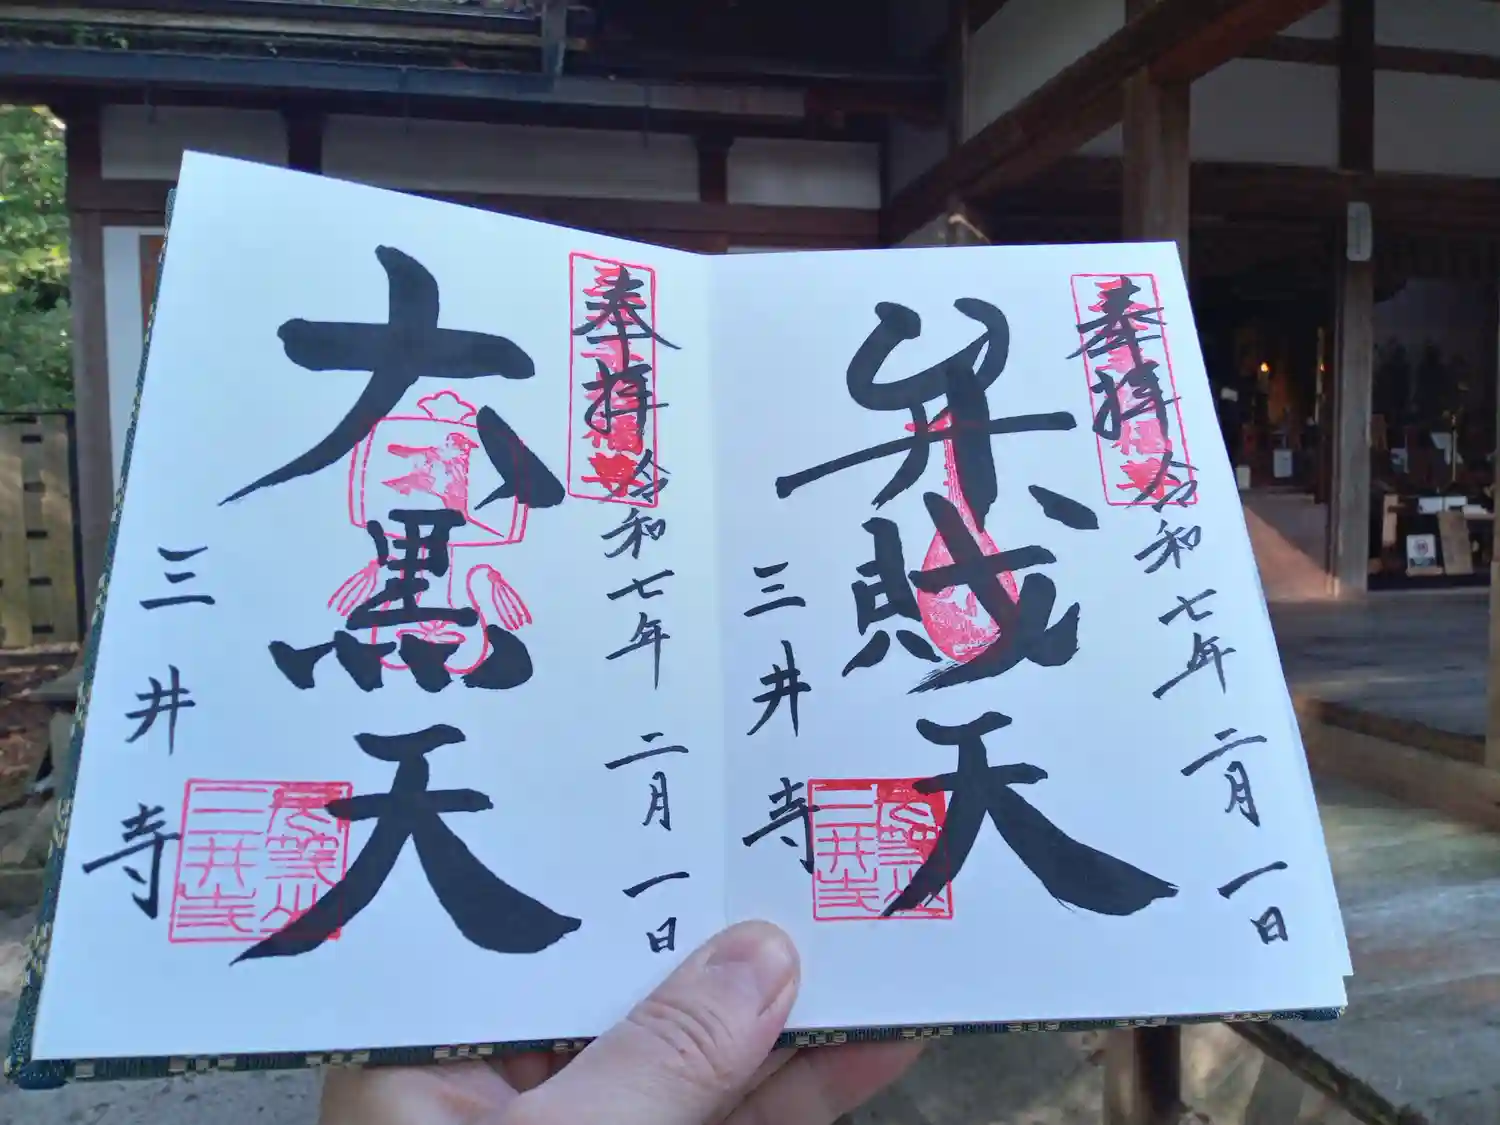 奉拝
令和七年二月一日
弁財天
三井寺
三井寺
奉拝
令和七年二月一日
大黒天
三井寺
三井寺